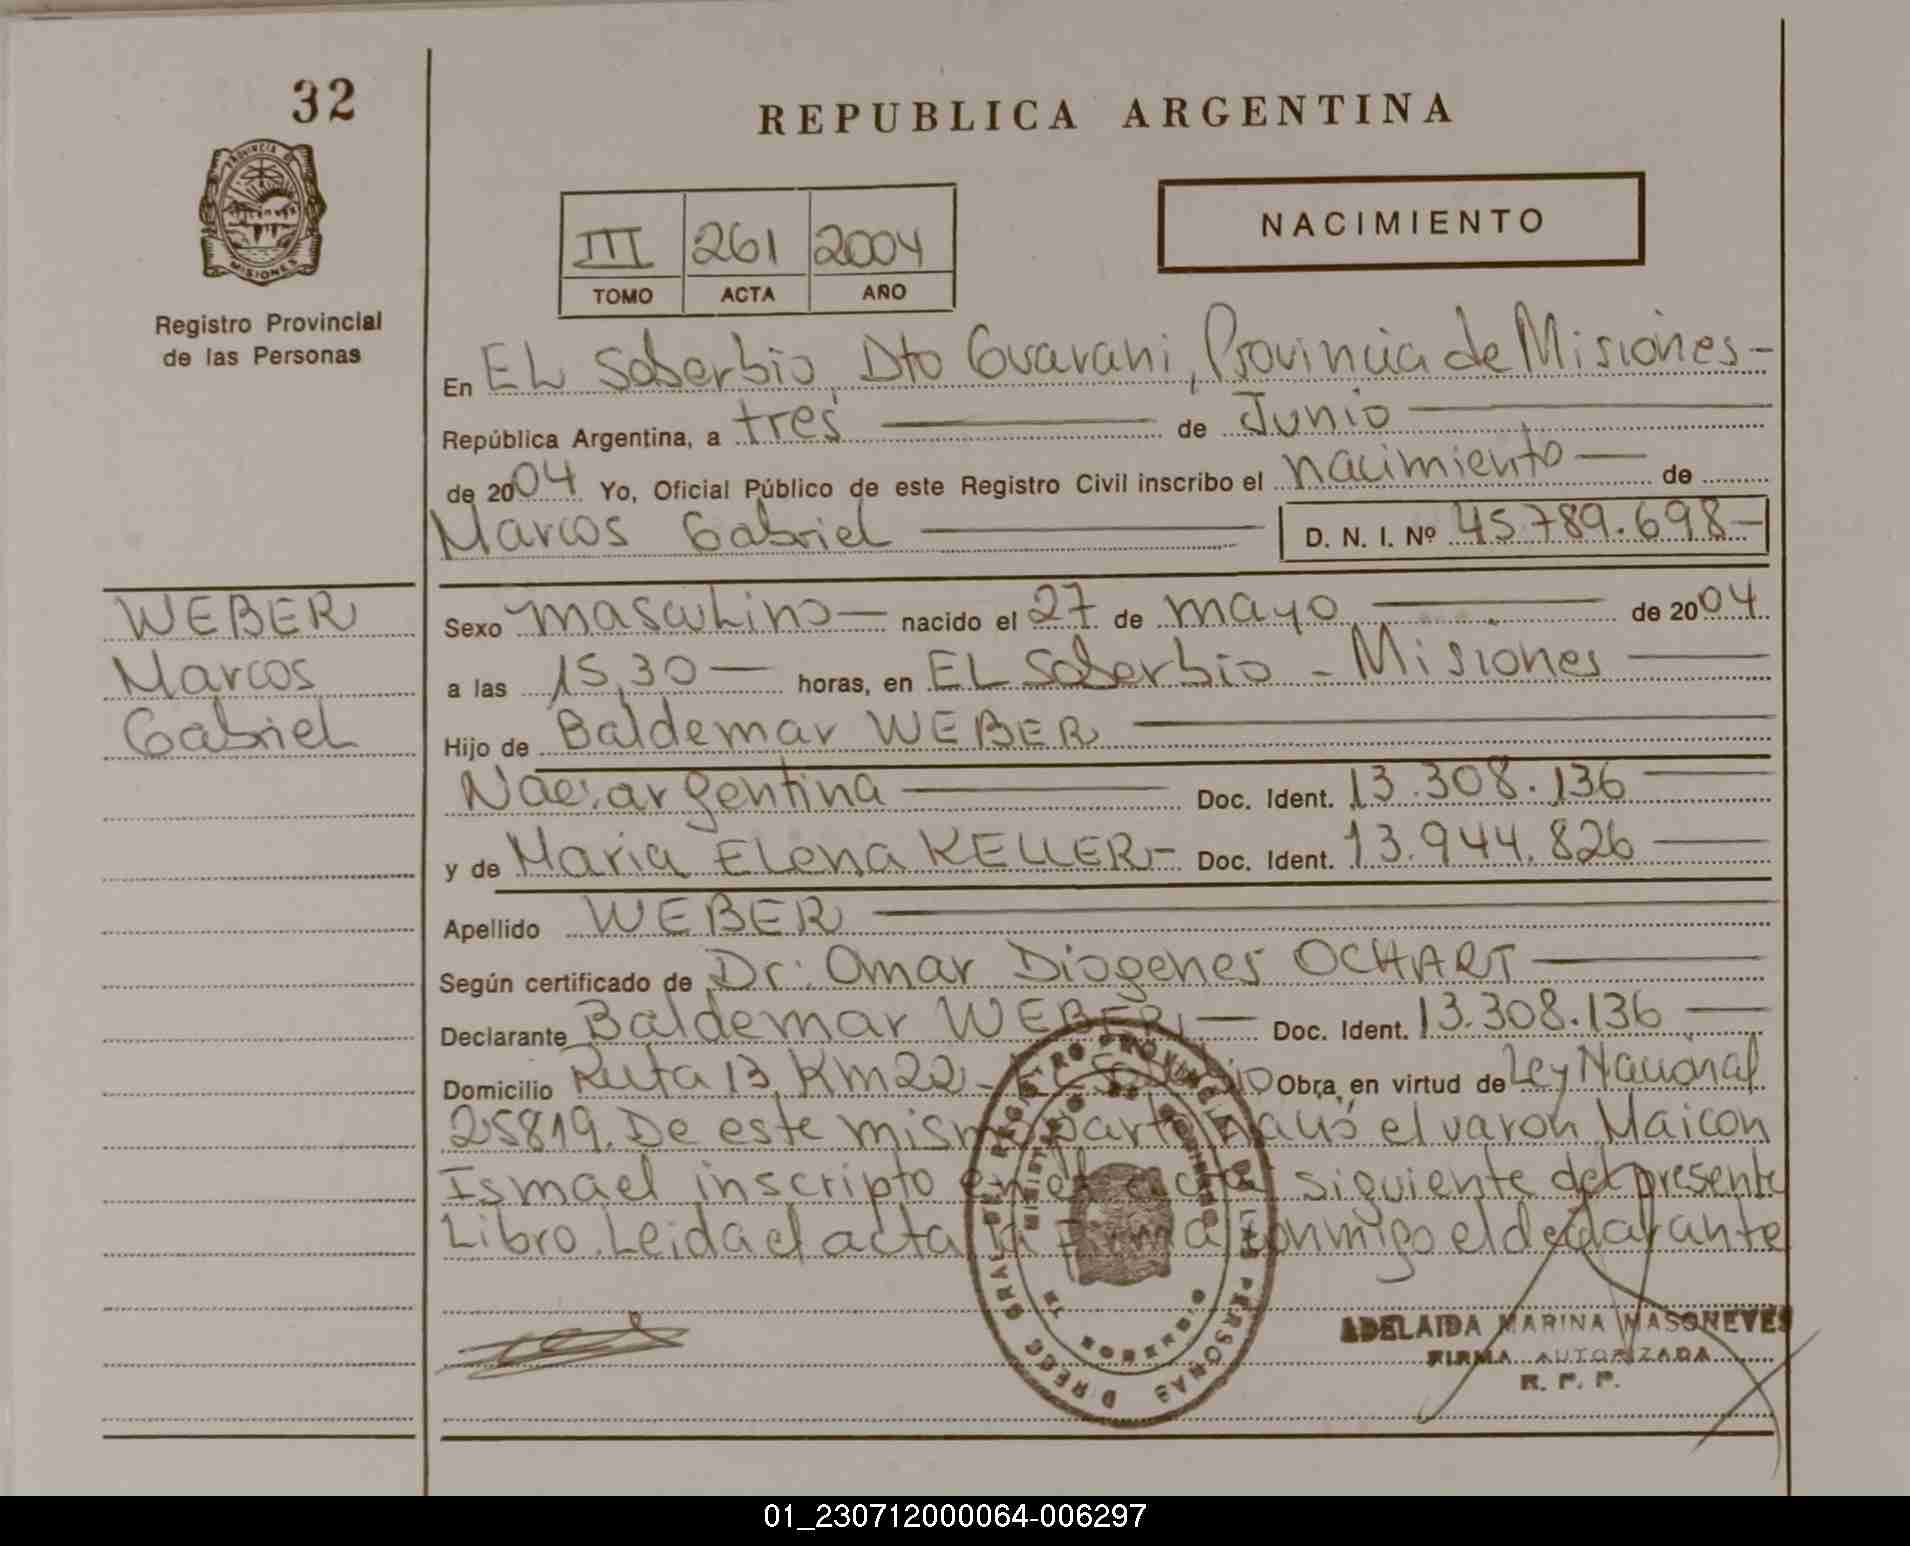 32
REPUBLICA ARGENTINA
PROVINCIA DE
MISIONES
Registro Provincial
de las Personas
III 261 2004
TOMO ACTA AÑO
NACIMIENTO
En EL Soberbio, Dto Guarani, Provincia de Misiones-
República Argentina, a tres de Junio
de 2004 Yo, Oficial Público de este Registro Civil inscribo el nacimiento de
Marcos Gabriel D. N. I. Nº 45.789.698-
WEBER
Marcos
Gabriel
Sexo masculino nacido el 27 de mayo de 2004
a las 15,30 horas, en EL Soberbio - Misiones
Hijo de Baldemar WEBER
Nac. argentina Doc. Ident. 13.308.136
y de Maria Elena KELLER- Doc. Ident. 13.944.826
Apellido WEBER
Según certificado de Dr: Omar Diogenes OCHART
Declarante Baldemar WEBER Doc. Ident. 13.308.136
Domicilio Ruta 13 Km 22- Obra, en virtud de Ley Nacional
25819. De este mismo parto nació el varon Maicon
Ismael inscripto en el acta siguiente del presente
Libro. Leida el acta la firma conmigo el declarante
ADELAIDA MARINA MASONEVES
FIRMA AUTORIZADA
R. P. P.
01_230712000064-006297